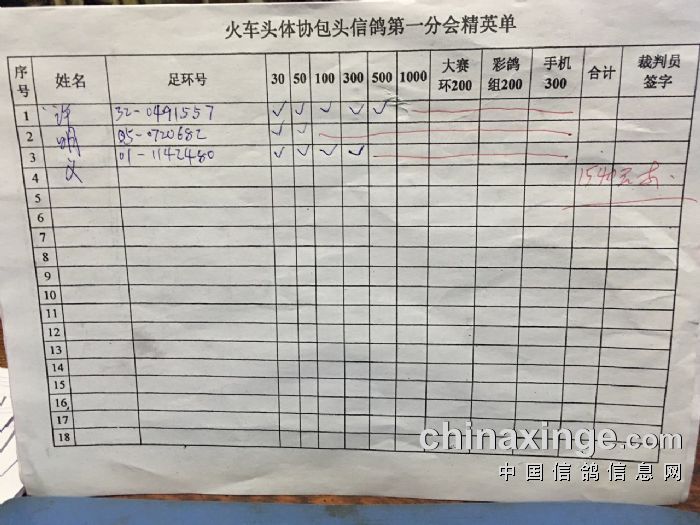 火车头体协包头信鸽第一分会精英单
序号 姓名 足环号 30 50 100 300 500 1000 大赛环200 彩鸽组200 手机300 合计 裁判员签字
1 许 32-0491557 ✓ ✓ ✓ ✓ ✓
2 明 05-0720682 ✓ ✓
3 义 01-1142480 ✓ ✓ ✓ ✓
4 1540元
5
6
7
8
9
10
11
12
13
14
15
16
17
18
chinaxinge.com
中国信鸽信息网